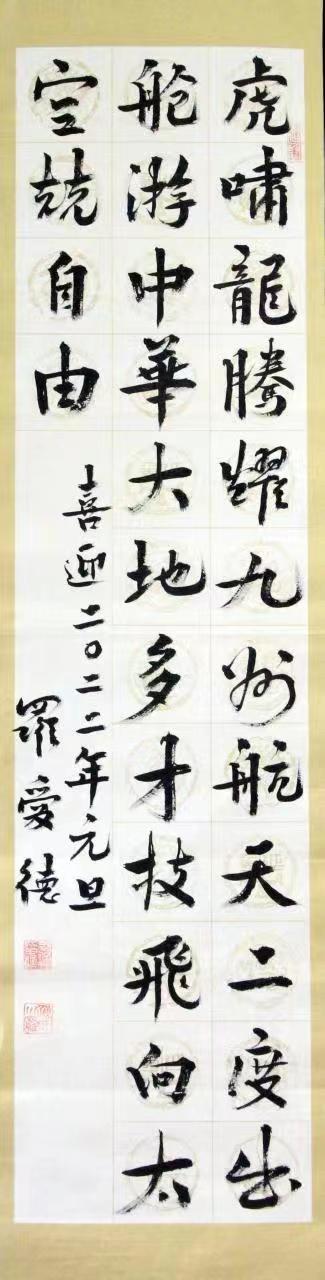 虎嘯龍騰耀九州航天二度出
舱游中華大地多才技飛向太
空競自由
喜迎二〇二二年元旦
羅愛德